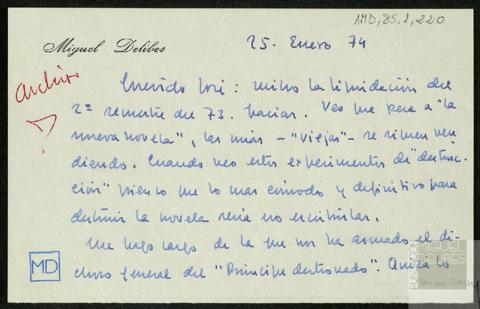 AMD,85,1,220
Miguel Delibes
25. Enero 74
Archivo
Querido José: recibo la liquidación del
2º semestre del 73. Gracias. Veo que pese a "la
nueva novela", las mías -"viejas"- se siguen ven
diendo. Cuando veo estos experimentos de "destruc-
ción" pienso que lo más cómodo y definitivo para
destruir la novela sería no escribirlas.
Me hago cargo de la que nos ha armado el di-
choso general del "Príncipe destronado". Quizá lo
MD
FUNDACIÓN
MIGUEL
DELIBES